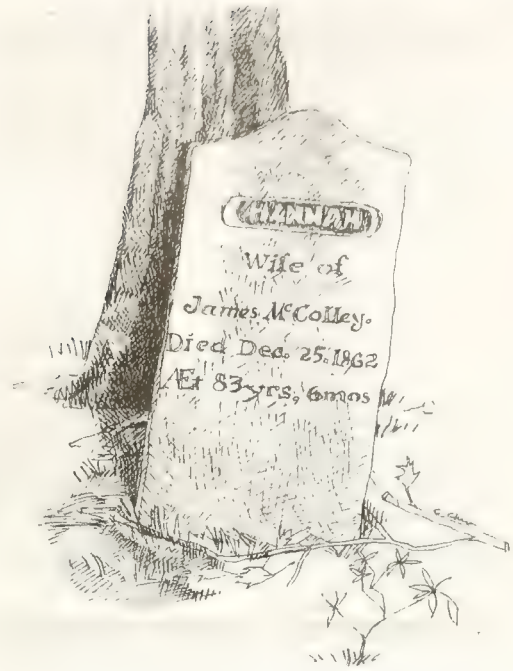 HANNAH
Wife of
James McColley.
Died Dec. 25. 1862
Æt 83 yrs, 6 mos